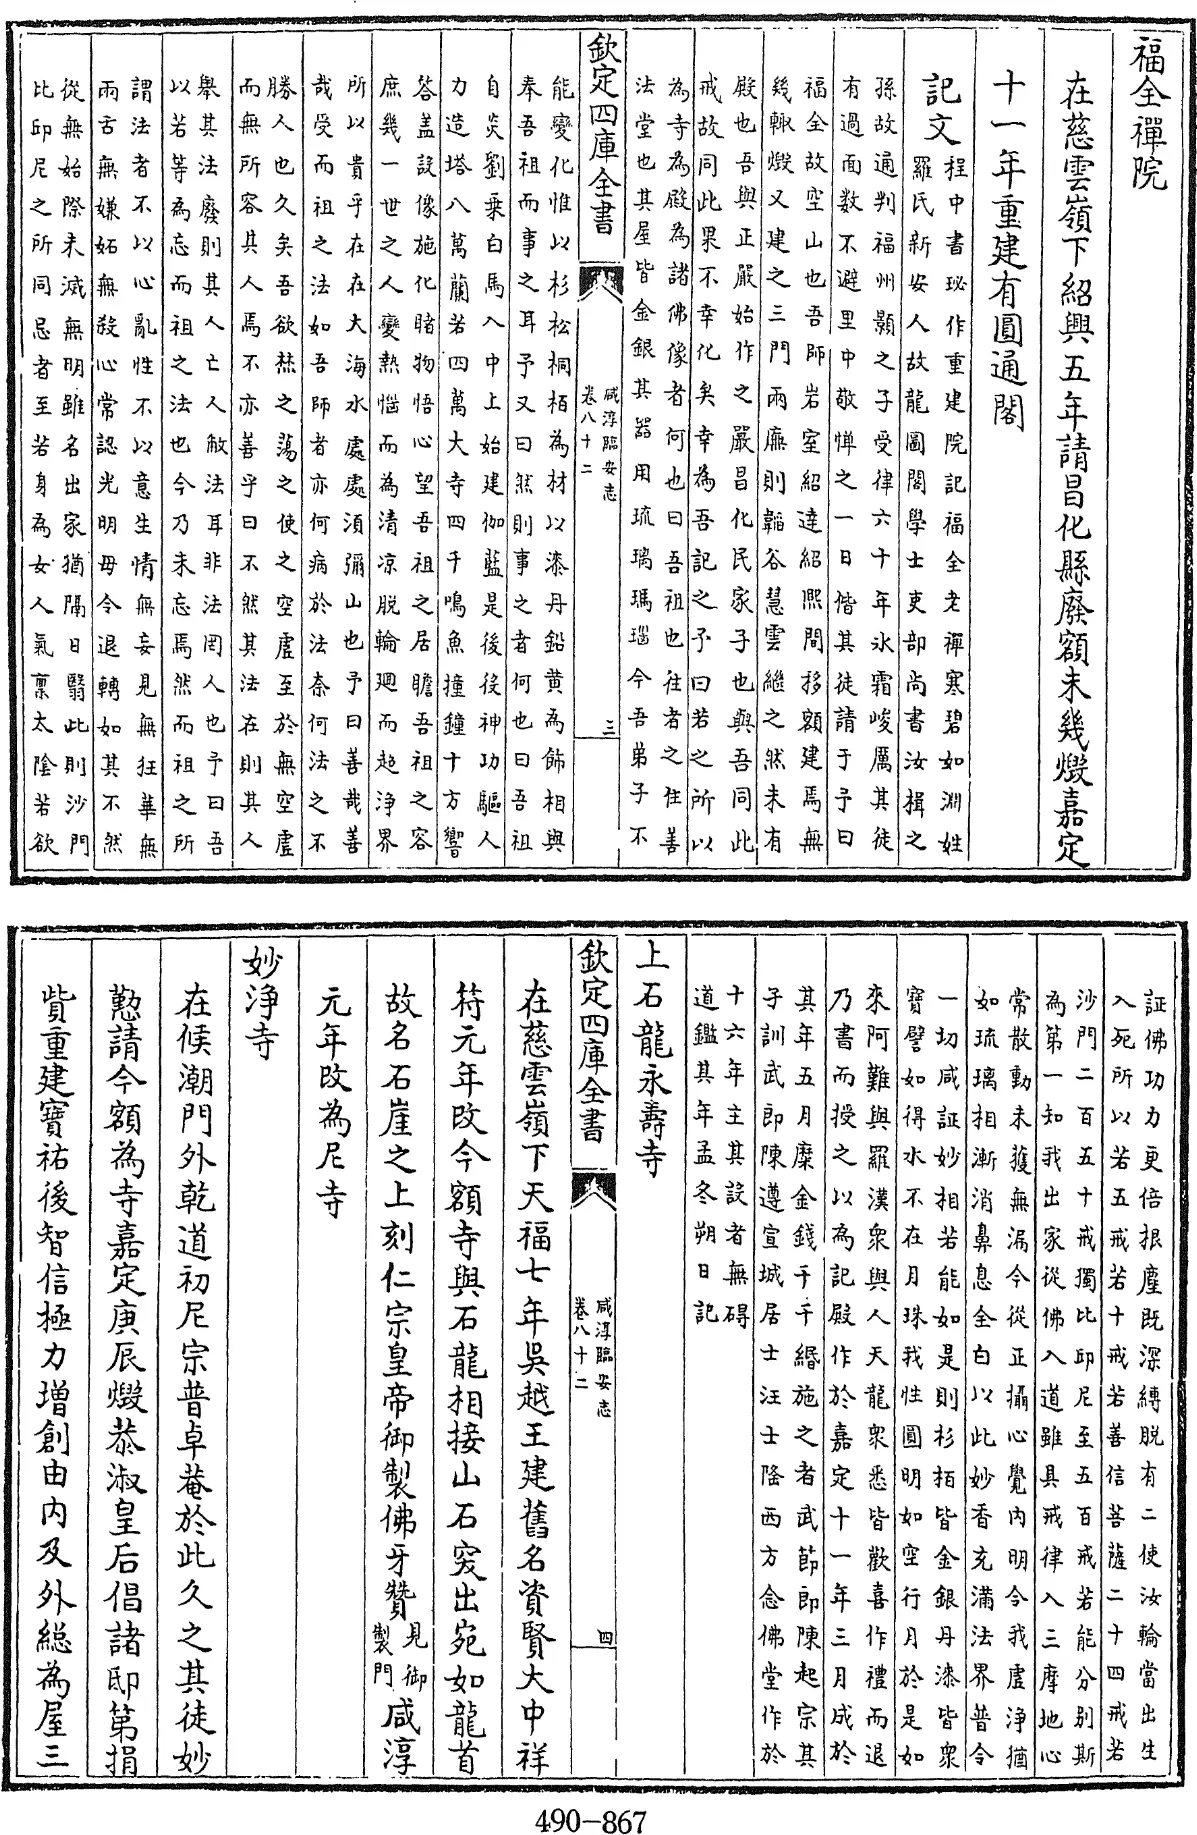 福全禪院
在慈雲嶺下紹興五年請昌化縣廢額未幾燬嘉定
十一年重建有圓通閣
記文
程中書珌作重建院記福全老禪寒碧如淵姓
羅氏新安人故龍圖閣學士吏部尚書汝揖之
孫故通判福州顥之子受律六十年氷霜峻厲其徒
有過面數不避里中敬憚之一日偕其徒請于予曰
福全故空山也吾師岩室紹達紹熈間移額建焉無
幾輙燬又建之三門兩廡則韜谷慧雲繼之然未有
殿也吾與正嚴始作之嚴昌化民家子也與吾同此
戒故同此果不幸化矣幸為吾記之予曰若之所以
為寺為殿為諸佛像者何也曰吾祖也往者之住善
法堂也其屋皆金銀其器用琉璃瑪瑙今吾弟子不
欽定四庫全書
咸淳臨安志
卷八十二
三
能變化惟以杉松桐栢為材以漆丹鉛黄為飾相與
奉吾祖而事之耳予又曰然則事之者何也曰吾祖
自炎劉乗白馬入中上始建伽藍是後後神功驅人
力造塔八萬蘭若四萬大寺四千鳴魚撞鐘十方響
荅盖設像施化睹物悟心望吾祖之居瞻吾祖之容
庶幾一世之人變熱惱而為清凉脱輪廻而超浄界
所以貴乎在在大海水處處須彌山也予曰善哉善
哉受而祖之法如吾師者亦何病於法奈何法之不
勝人也久矣吾欲焚之蕩之使之空虛至於無空虛
而無所容其人焉不亦善乎曰不然其法在則其人
舉其法廢則其人亡人敝法耳非法罔人也予曰吾
以若等為忘而祖之法也今乃未忘焉然而祖之所
謂法者不以心亂性不以意生情無妄見無狂華無
兩舌無嫌妬無殺心常認光明毋令退轉如其不然
從無始際未滅無明雖名出家猶隔日翳此則沙門
比邱尼之所同忌者至若身為女人氣禀太隂若欲
証佛功力更倍根塵既深縛脱有二使汝輪當出生
入死所以若五戒若十戒若善信菩薩二十四戒若
沙門二百五十戒獨比邱尼至五百戒若能分别斯
為第一知我出家從佛入道雖具戒律入三摩地心
常散動未獲無漏今從正攝心覺内明今我虛浄猶
如琉璃相漸消鼻息全白以此妙香充滿法界普令
一切咸証妙相若能如是則杉栢皆金銀丹漆皆衆
寶譬如得水不在月珠我性圓明如空行月於是如
來阿難與羅漢衆與人天龍衆悉皆歡喜作禮而退
乃書而授之以為記殿作於嘉定十一年三月成於
其年五月糜金錢千千緡施之者武節郎陳起宗其
子訓武郎陳遵宣城居士汪士隆西方念佛堂作於
十六年主其設者無碍
道鑑其年孟冬朔日記
上石龍永壽寺
欽定四庫全書
咸淳臨安志
卷八十二
四
在慈雲嶺下天福七年吳越王建舊名資賢大中祥
符元年改今額寺與石龍相接山石突出宛如龍首
故名石崖之上刻仁宗皇帝御製佛牙贊見御製門咸淳
元年改為尼寺
妙浄寺
在候潮門外乾道初尼宗普卓菴於此久之其徒妙
懃請今額為寺嘉定庚辰燬恭淑皇后倡諸邸第捐
貲重建寳祐後智信極力增創由内及外總為屋三
490-867